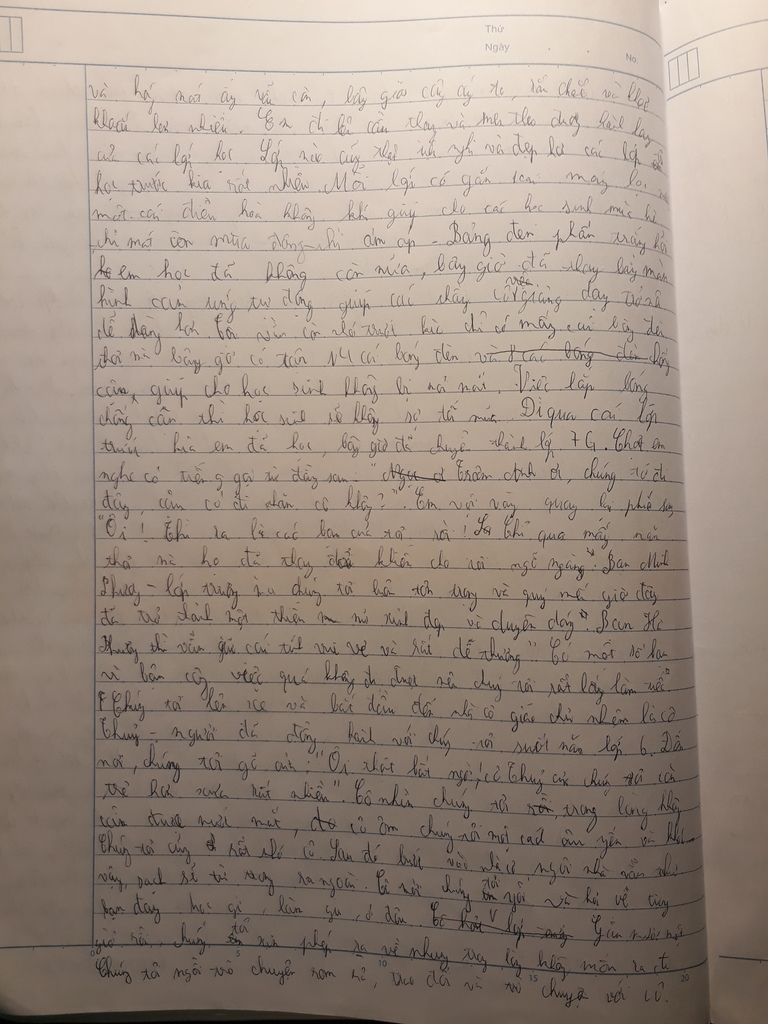 Thứ
Ngày
No.
và mái ấy vẫn còn, bây giờ cây ấy to, rắn chắc và
khoẻ hơn nhiều. Em đi lên cầu thang và men theo dọc hành lang
của các lớp học. Lớp nào cũng thật tiện nghi và đẹp hơn các lớp
học trước kia rất nhiều. Mỗi lớp có gắn trong
một cái điều hoà không khí giúp cho các học sinh mùa hè
thì mát còn mùa đông thì ấm áp - Bảng đen phấn trắng hồi
em học đã không còn nữa, bây giờ đã thay bằng màn
hình cảm ứng tự động giúp các thầy cô giảng dạy trở nên
dễ dàng hơn. Tôi vẫn còn nhớ trước kia chỉ có mấy cái bóng đèn
thôi mà bây giờ có trên 14 cái bóng đèn và 8 cái bóng đèn chống
cận, giúp cho học sinh không bị mỏi mắt. Việc lắp bóng
chống cận thì học sinh sẽ không sợ tối nữa. Đi qua cái lớp
trước kia em đã học, bây giờ đã chuyển thành lớp 7G. Chợt em
nghe có tiếng gọi từ đằng sau: " Trâm Anh ơi, chúng tớ ở
đây, cậu có đi thăm cô không?". Em vội vàng quay lại phía sau
"Ôi! Thì ra là các bạn của tôi rồi! Chỉ qua mấy năm
thôi mà họ đã thay đổi khiến cho tôi ngỡ ngàng". Bạn Minh
Phương - lớp trưởng mà chúng tôi luôn tôn trọng và quý mến giờ đây
đã trở thành một thiếu nữ xinh đẹp và duyên dáng". Bạn Hà
Phương thì vẫn giữ cái tính vui vẻ và rất dễ thương". Có một số bạn
vì bận công việc quá không đến được nên chúng tôi rất lấy làm tiếc.
Chúng tôi lên xe và bắt đầu đến nhà cô giáo chủ nhiệm là cô
Thuỷ - người đã đồng hành với chúng tôi suốt năm lớp 6. Đến
nơi, chúng tôi gõ cửa: "Ôi thật bất ngờ! cô Thuỷ của chúng tôi còn
trẻ hơn xưa rất nhiều". Cô nhìn chúng tôi rồi, trong lòng không
cầm được nước mắt, cô ôm chúng tôi một cách âu yếm và khóc.
Chúng tôi cũng rất nhớ cô. Sau đó bước vào nhà cô, ngôi nhà vẫn như
vậy, sạch sẽ từ trong ra ngoài. Cô mời chúng tôi ngồi và hỏi về từng
bạn đang học gì, làm gì, ở đâu. Gần
giờ rồi, chúng tôi xin phép ra về nhưng trong lòng không muốn ra đi
Chúng tôi ngồi trò chuyện rôm rả, trao đổi và trò chuyện với cô.
0 5 10 15 20